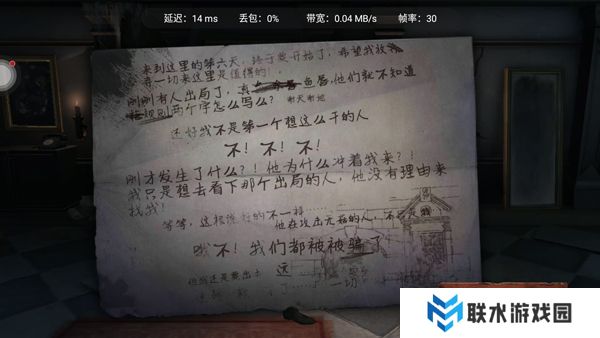 延迟：14 ms 丢包：0% 带宽：0.04 MB/s 帧率：30
来到这里的第六天，终于要开始了，希望我放
弃一切来这里是值得的！
刚刚有人出局了，真 鱼唇，他们就不知道
规则两个字怎么写么？ 谢天谢地
还好我不是第一个想这么干的人
不！不！不！
刚才发生了什么？！他为什么冲着我来？！
我只是想去看下那个出局的人，他没有理由来
找我！
等等，这根 的不一样
他在攻击无辜的人
不！我们都被被骗了
但我还是要出去
远
一切
联水游戏园